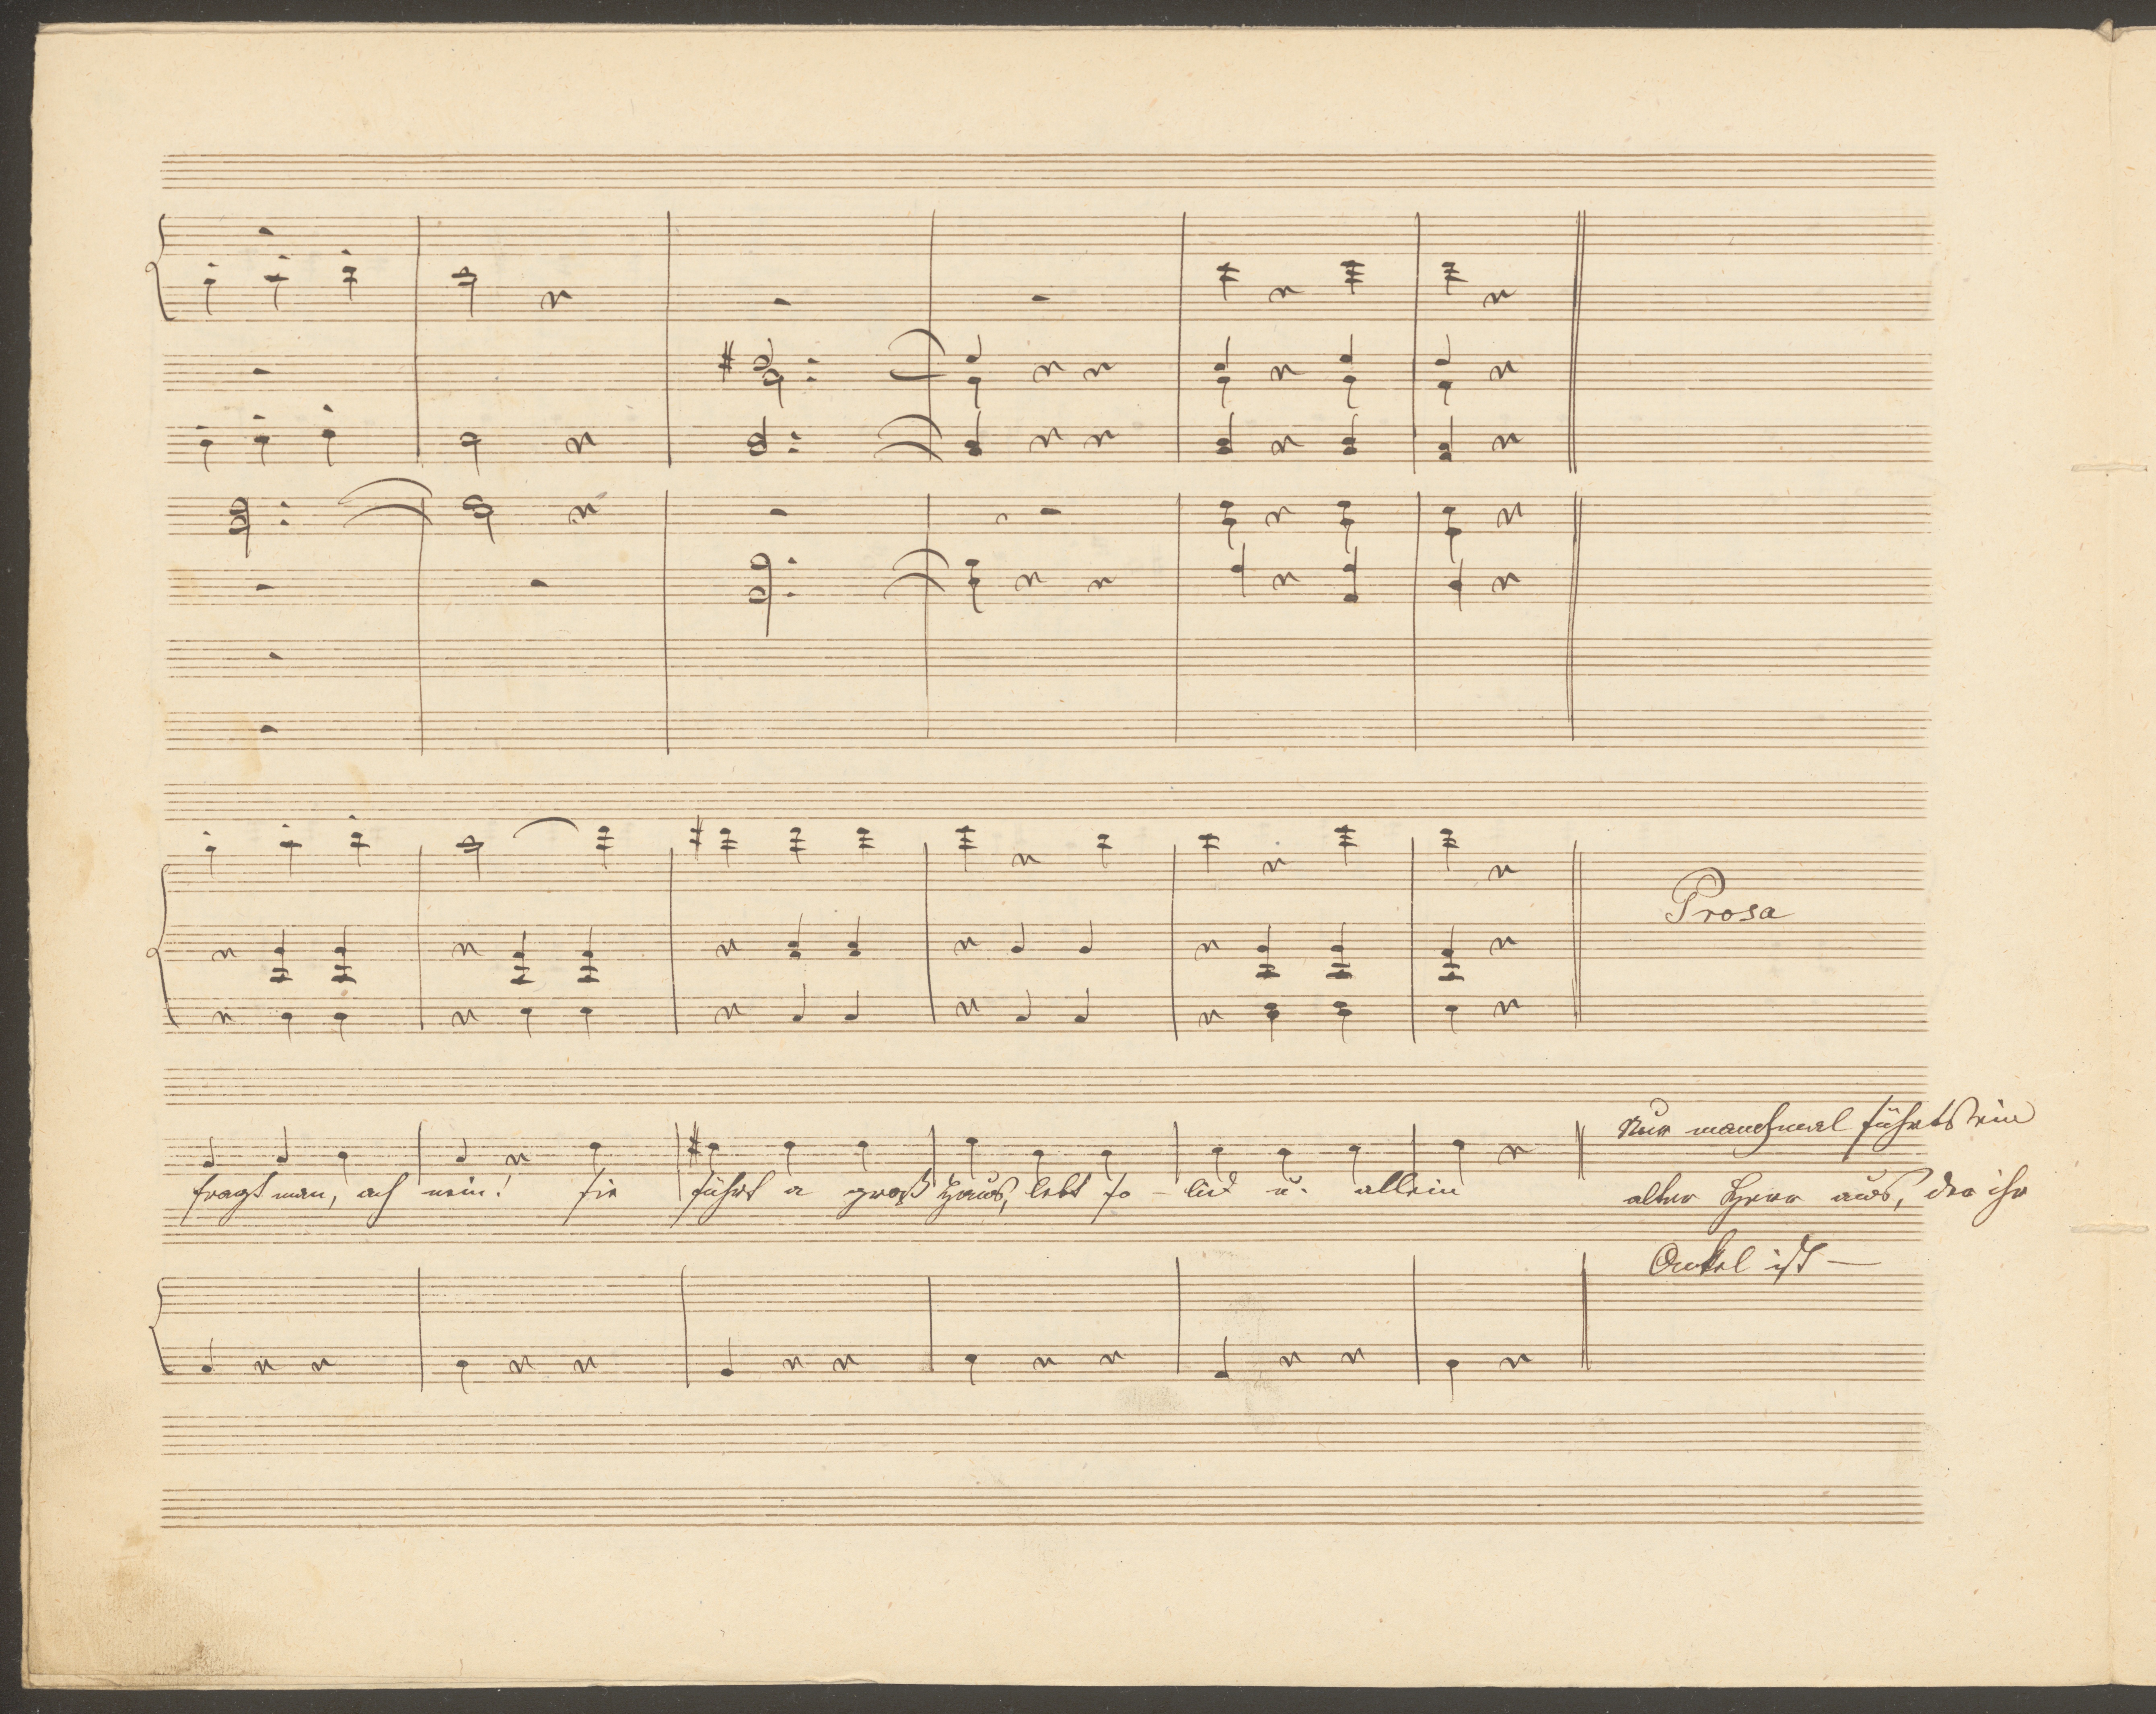 Prosa
Nur manchmal führts ein
fragt man, ach nein! sie führt a groß Haus, lebt so - lid u. allein
alter Herr aus, der ihr
Onkel ist —